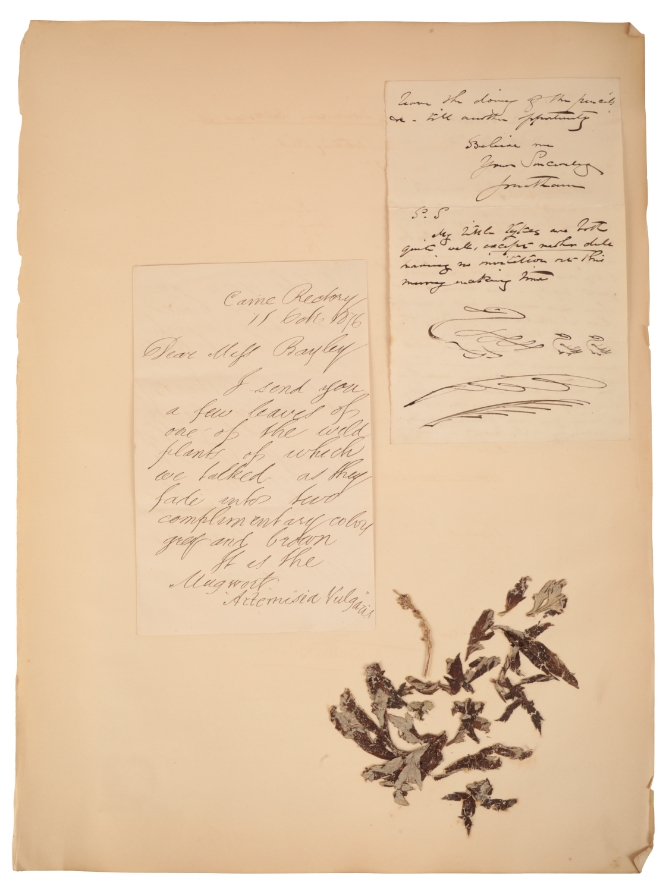 Came Rectory
Dear Miss Bayley
I send you
a few leaves of
one of the wild
plants of which
we talked as they
fade into two
complimentary colors
grey and brown
It is the
Mugwort
"Artemisia Vulgaris"
the doing of the pencils
till another opportunity
Believe me
Yours Sincerely
Jonathan
P.S
My little are both
quite well, except
no invitation at this
merry making time